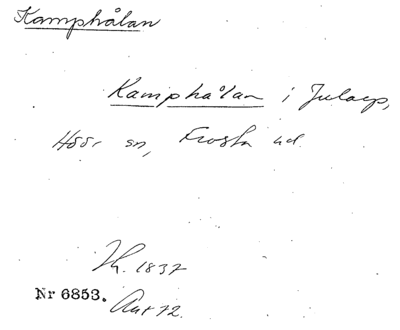 Kamphålan
Kamphålan i Jularp,
Höör sn, Frosta hd.
1837
Nr 6853.